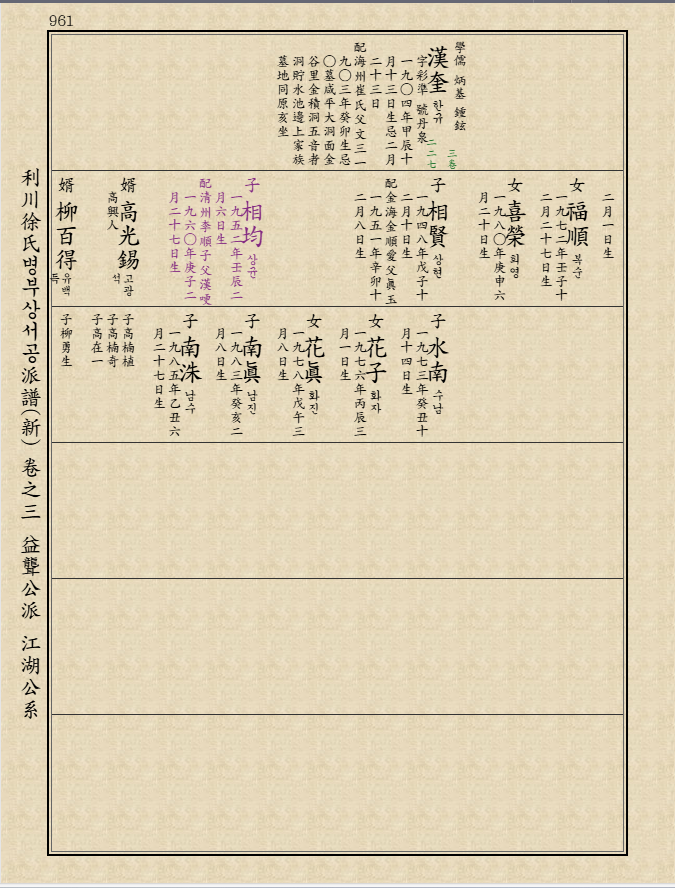 961
利川徐氏병부상서공派譜(新) 卷之三 益聾公派 江湖公系
學儒 炳基 鍾鉉
三卷
漢奎 한규
二二七
字彩準 號丹泉
一九〇四年甲辰十
月十三日生忌二月
二十三日
配海州崔氏父文三一
九〇三年癸卯生忌
〇墓咸平大洞面金
谷里金積洞五音者
洞貯水池邊上家族
墓地同原亥坐
二月一日生
女福順 복순
一九七二年壬子十
二月二十七日生
女喜榮 희영
一九八〇年庚申六
月二十日生
子相賢 상현
一九四八年戊子十
二月十日生
配金海金順愛父眞玉
一九五一年辛卯十
二月八日生
子相均 상균
一九五二年壬辰二
月六日生
配清州李順子父漢哽
一九六〇年庚子二
月二十七日生
婿高光錫 고광석
高興人
婿柳百得 유백득
子水南 수남
一九七三年癸丑十
月十四日生
女花子 화자
一九七六年丙辰三
月一日生
女花眞 화진
一九七八年戊午三
月八日生
子南眞 남진
一九八三年癸亥二
月八日生
子南洙 남수
一九八五年乙丑六
月二十七日生
子高楠植
子高楠奇
子高在一
子柳勇生